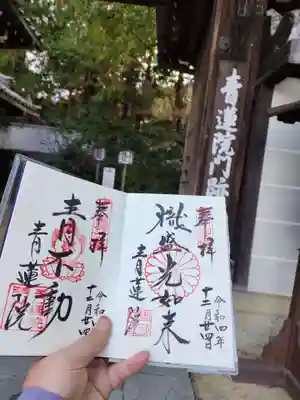 青蓮院門跡
奉拝
令和四年
十二月廿四
熾盛光如来
青蓮院
奉拝
令和
十二月廿四
青不動
青蓮院